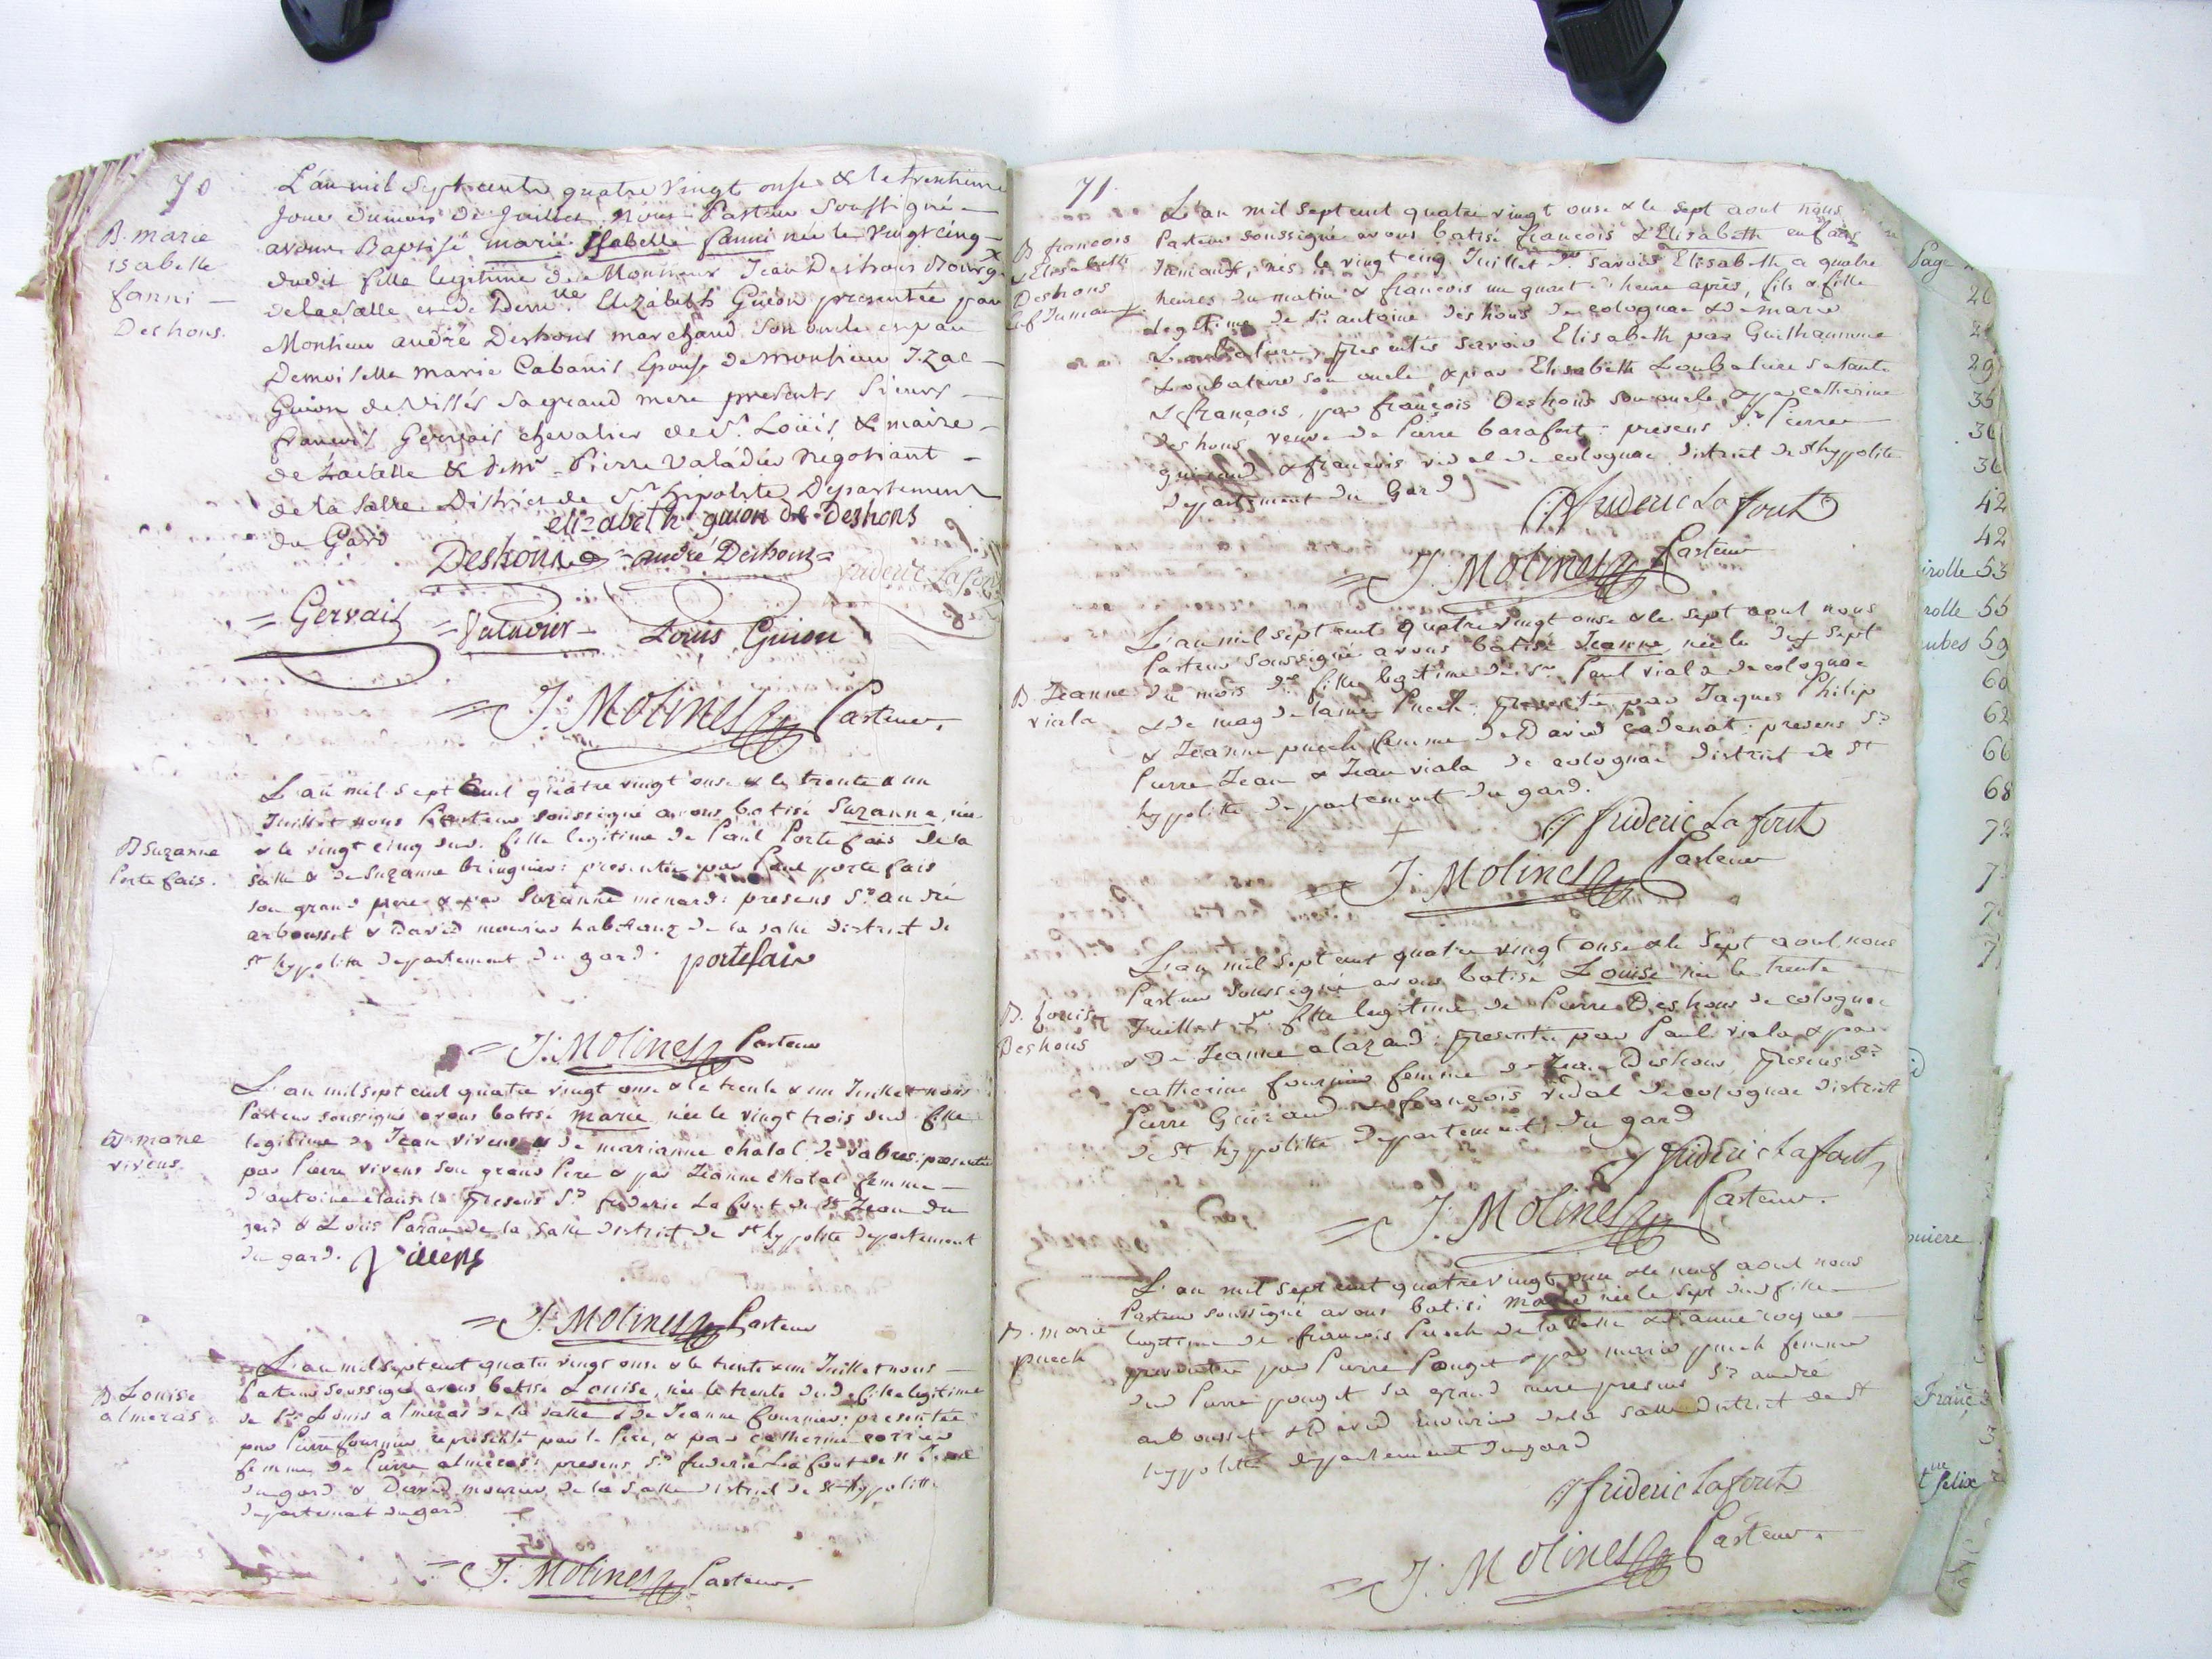 70
B. marie
isabelle
fanni —
Deshons.
L'an mil sept cents quatre vingt onse & le trentieme
jour du mois de juillet Nous Pasteur Soussigné —
avons Baptisé marie Isabelle fanni née le vingt cinq —
dudit fille legitime de Monsieur Jean Deshons Bourg.x
de la Salle et de Demlle Elizabeth Guion presentée par
Monsieur andré Deshons marchand son oncle et par
Demoiselle marie Cabanis Epouse de monsieur Izac —
Guion de sa grand mere presents Sieurs —
francois Gervais chevalier de St Loüis & maire —
de Lasalle & de mr Pierre Valadier negotiant —
de la Salle District de St hipolite Departement
du Gard
elizabeth guion de Deshons
Deshons andré Deshons
= Gervais = Valadier — Louis Guion
= J: Molines Pasteur.
B Suzanne
Porte fais.
L'an mil sept cent quatre vingt onse & le trente & un
Juillet nous Pasteur soussigné avons batisé Suzanne, née
le vingt cinq dud. fille legitime de Paul Porte fais de la
salle & de Suzanne bringuier: presentée par Paul porte fais
son grand pere & par Suzanne menard: presens Srs andré
arbousset & David mourier habitans de la salle district de
St hypolite departement du gard. portefaix
= J: Molines Pasteur
B. marie
vivens.
L'an mil sept cent quatre vingt onse & le trente & un Juillet nous
Pasteur soussigné avons batisé marie née le vingt trois dud. fille
legitime de Jean vivens & de marianne chatal de vabres: presentée
par Pierre vivens son grand Pere & par Jeanne chatal femme —
d'antoine presens Srs frideric Lafont de St Jean du
gard & Louis de la Salle district de St hypolite departement
du gard. Vivens
= J: Molines Pasteur
B Louise
almeras
L'an mil sept cent quatre vingt onse & le trente & un Juillet nous —
Pasteur soussigné avons batisé Louise, née le trente dud. fille legitime
de Sr Louis almeras de la salle & de Jeanne fournier: presentée
par Pierre fournier representé par le Pere, & par catherine
femme de Pierre almeras: presens Srs frideric Lafont de St Jean
du gard & David mourier de la Salle district de St hypolitte
departement du gard.
= J: Molines Pasteur.
71.
B francois
& Elisabeth
Deshons
L'an mil sept cent quatre vingt onse & le sept aout nous
Pasteur soussigné avons batisé francois & Elisabeth enfans
Jumaux, nés le vingt cinq Juillet dr savoir Elisabeth a quatre
heures du matin & francois un quart d'heure après, fils & fille
legitime de Sr antoine deshons de colognac & de marie
Loubatiere, presentés savoir Elisabeth par Guilhaumme
Loubatiere son oncle, & par Elisabeth Loubatiere sa tante
& françois, par françois Deshons son oncle, & par catherine
deshons veuve de Pierre barafort: presens Sr Pierre
guiraud & francois vidal de colognac district de St hypolite
departement du Gard
frideric Lafont
= J: Molines Pasteur
B. Jeanne
viala
L'an mil sept cent quatre vingt onse & le sept aout nous
Pasteur soussigné avons batisé Jeanne, née le sept
du mois dr fille legitime de Sr Paul viala de colognac
& de magdelaine Puech: presentée par Jaques Philip
& Jeanne puech femme de David cadenat: presens Srs
Pierre Jean & Jean viala de colognac district de St
hypolitte departement du gard.
frideric Lafont
= J: Molines Pasteur
B. Louise
Deshons
L'an mil sept cent quatre vingt onse & le sept aout nous
Pasteur soussigné avons batisé Louise née le trente
Juillet dr fille legitime de Pierre Deshons de colognac
& de Jeanne alazard: presentée par Paul viala & par
catherine fournier femme de Jean Deshons presens Srs
Pierre Guiraud & françois vidal de colognac district
de St hypolitte departement du gard
frideric Lafont
= J: Molines Pasteur.
B. marie
puech
L'an mil sept cent quatre vingt onse & le neuf aout nous
Pasteur soussigné avons batisé marie née le sept dud fille —
legitime de francois Puech de la salle & d'anne
presentée par Pierre Pouget & par marie puech femme
dud Pierre pouget sa grand mere presens Srs andré
arbousset & David mourier de la salle district de St
hypolitte departement du gard
frideric Lafont
= J: Molines Pasteur.
Page
26
29
35
36
42
42
irolle 53
rolle 55
ubes 59
60
62
66
68
72